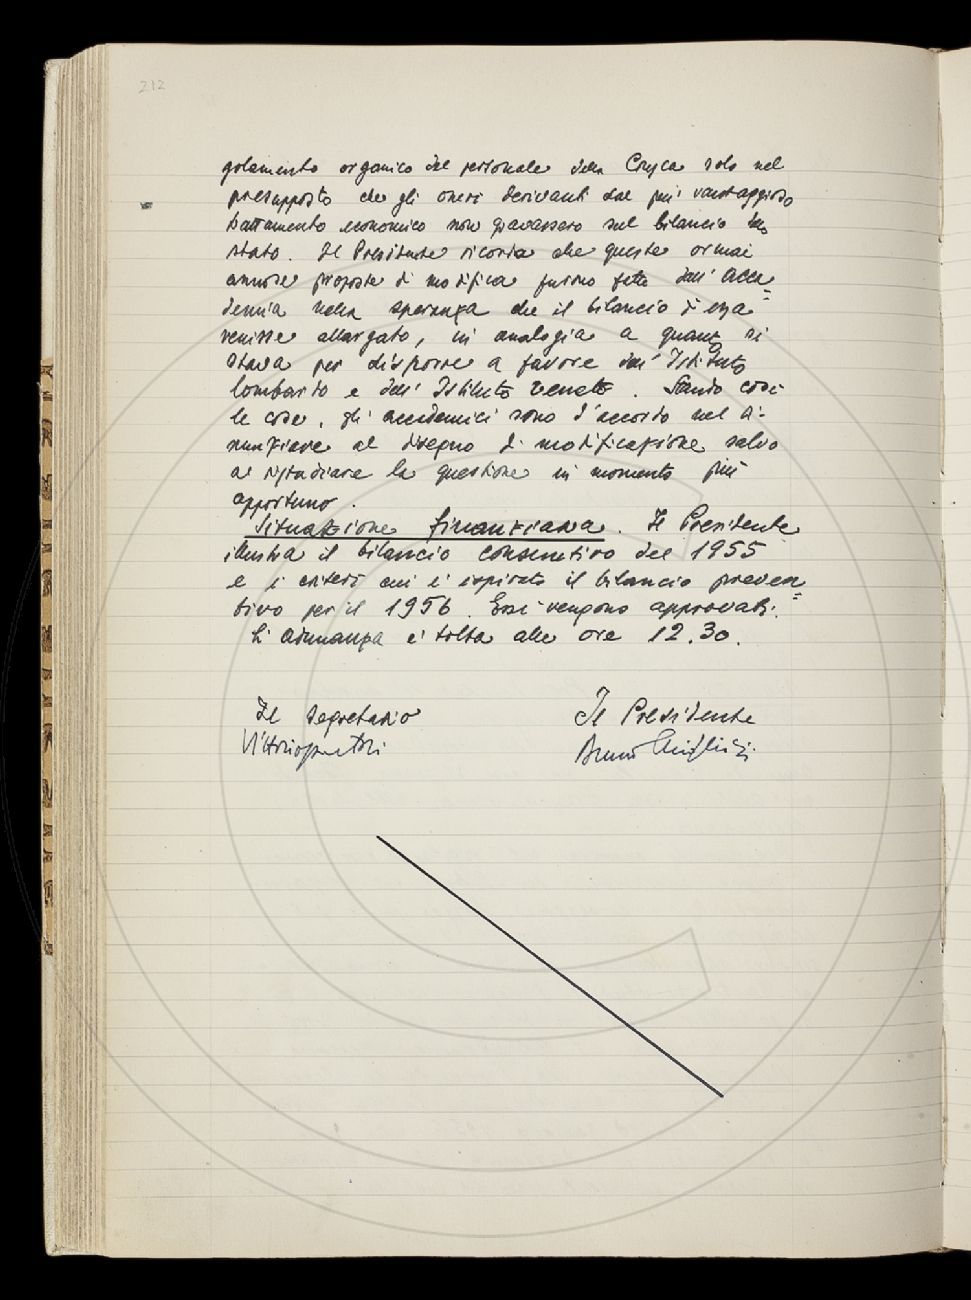 212
golamento organico del personale della Crusca solo nel
presupposto che gli oneri derivanti dal più vantaggioso
trattamento economico non gravassero sul bilancio dello
stato. Il Presidente ricorda che queste ormai
annose proposte di modifica furono fatte dall'Acca=
demia nella speranza che il bilancio di essa
venisse allargato, in analogia a quanto si
stava per disporre a favore dell'Istituto
lombardo e dell'Istituto Veneto. Stando così
le cose, gli accademici sono d'accordo nel ri=
nunziare al disegno di modificazione salvo
a ristudiare la questione in momento più
opportuno.
Situazione finanziaria. Il Presidente
illustra il bilancio consuntivo del 1955
e i criteri cui è ispirato il bilancio preven=
tivo per il 1956. Essi vengono approvati.
L'adunanza è tolta alle ore 12.30.
Il Segretario
Il Presidente
Bruno Migliorini